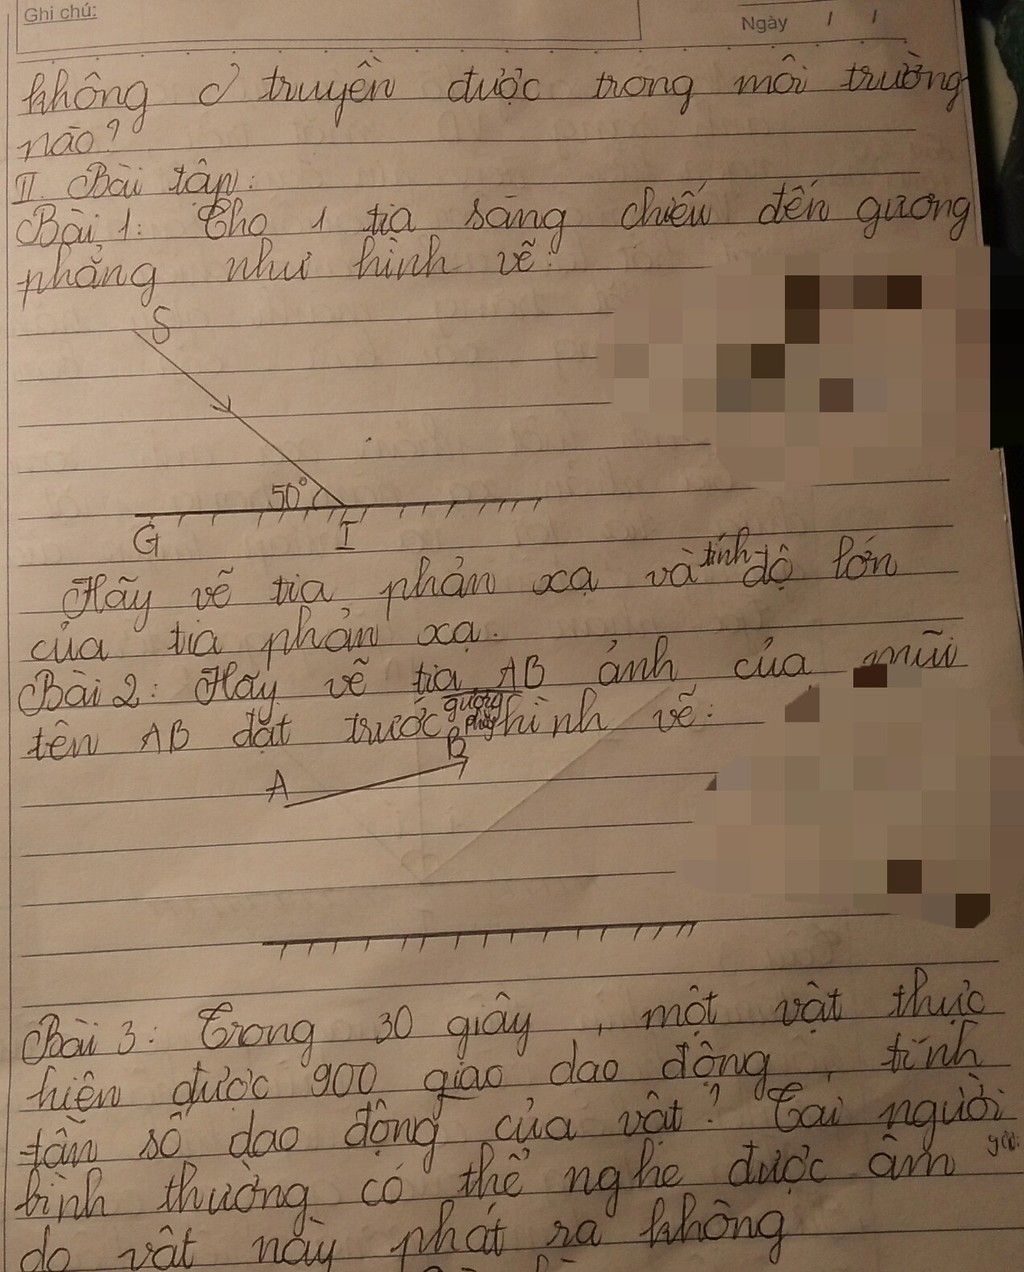 Ghi chú:
Ngày / /
không truyền được trong môi trường
nào?
II. Bài tập:
Bài 1: Cho 1 tia sáng chiếu đến gương
phẳng như hình vẽ:
S
50°
G I
Hãy vẽ tia phản xạ và tính độ lớn
của tia phản xạ.
Bài 2: Hãy vẽ tia AB ảnh của mũi
tên AB đặt trước gương phẳng hình vẽ:
A B
Bài 3: Trong 30 giây, một vật thực
hiện được 900 giao dao động, tính
tần số dao động của vật? Tai người
bình thường có thể nghe được âm
do vật này phát ra không